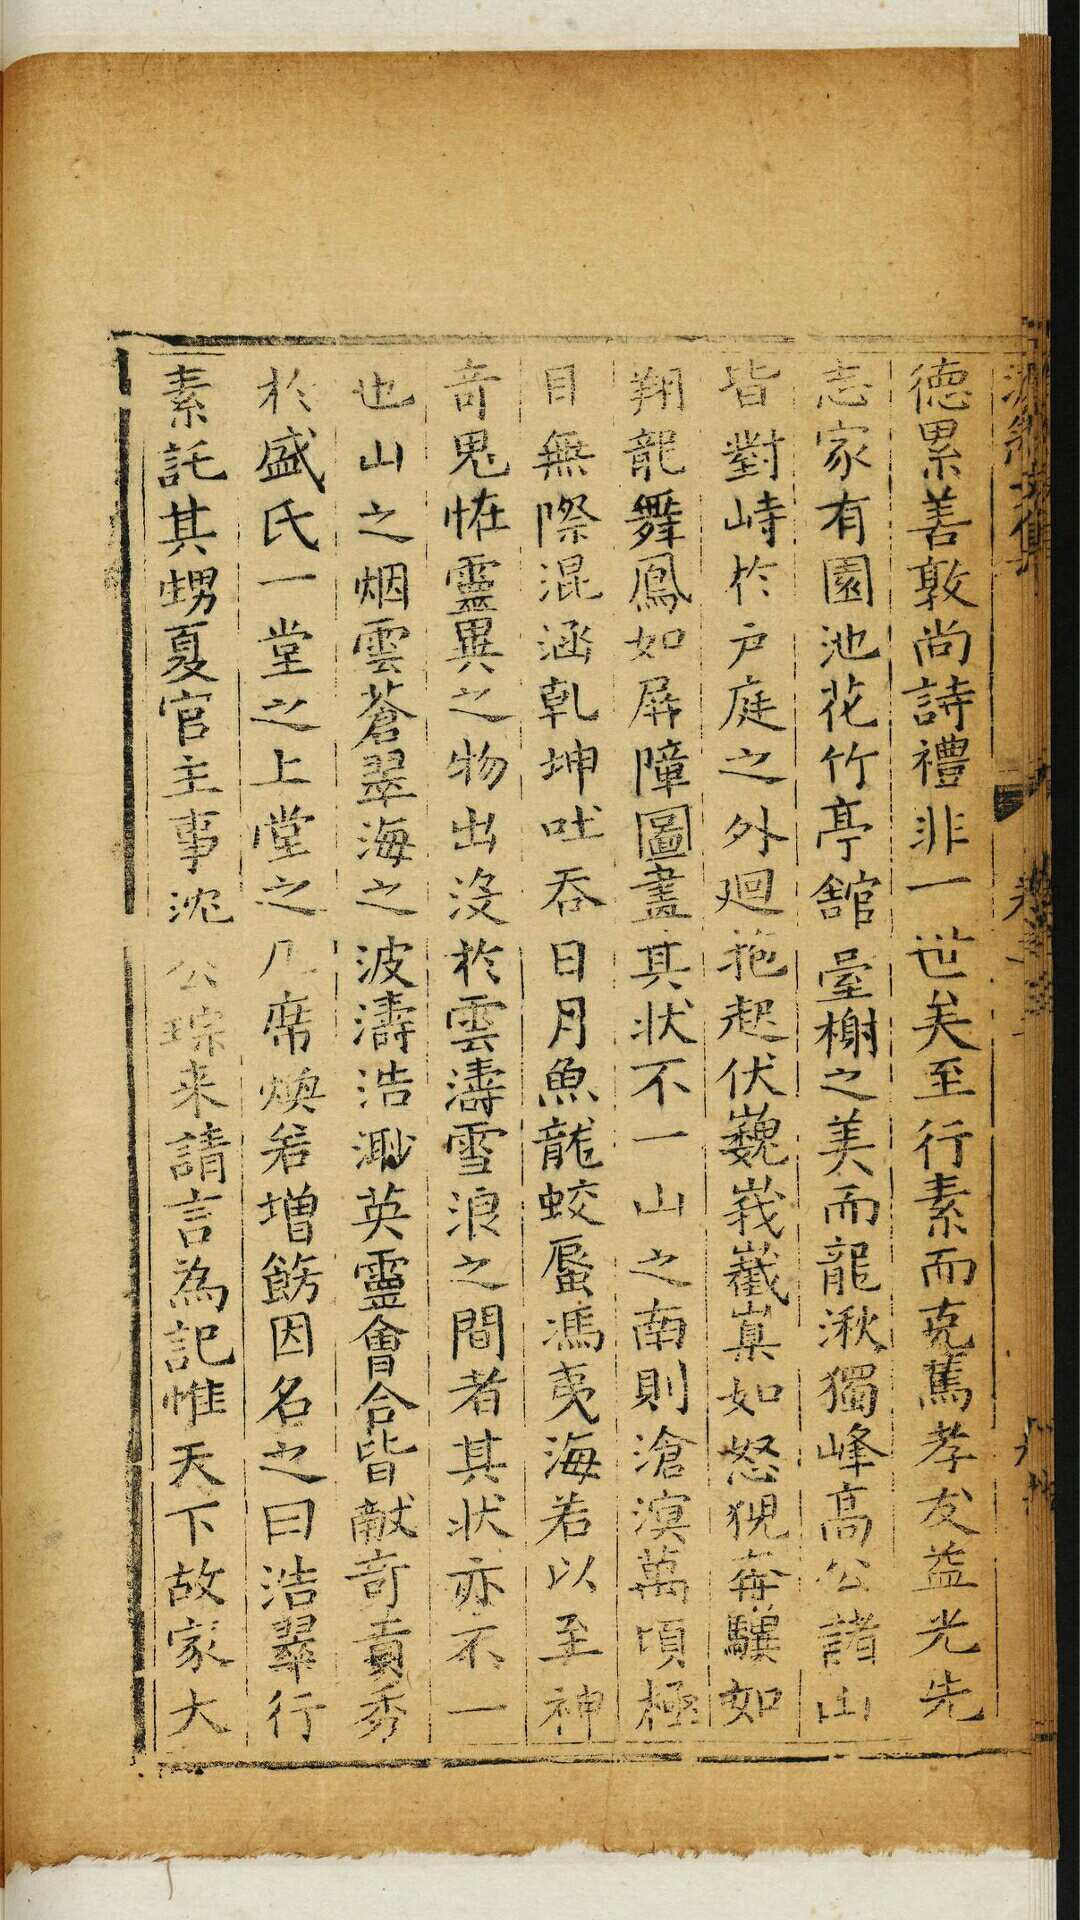 德累善敦尚詩禮非一世矣至行素而克篤孝友益光先
志家有園池花竹亭舘臺榭之美而龍湫獨峰高公諸山
皆對峙於戶庭之外廻拖起伏巍峩巀嶪如怒猊奔驥如
翔龍舞鳳如屏障圖畫其状不一山之南則滄溟萬頃極
目無際混涵乹坤吐吞日月魚龍蛟蜃馮夷海若以至神
竒鬼恠靈異之物出没於雲濤雪浪之間者其状亦不一
也山之烟雲蒼翠海之波濤浩渺英靈會合皆献竒貢秀
於盛氏一堂之上堂之几席煥若增餙因名之曰浩翠行
素託其甥夏官主事沈公琮来請言為記惟天下故家大